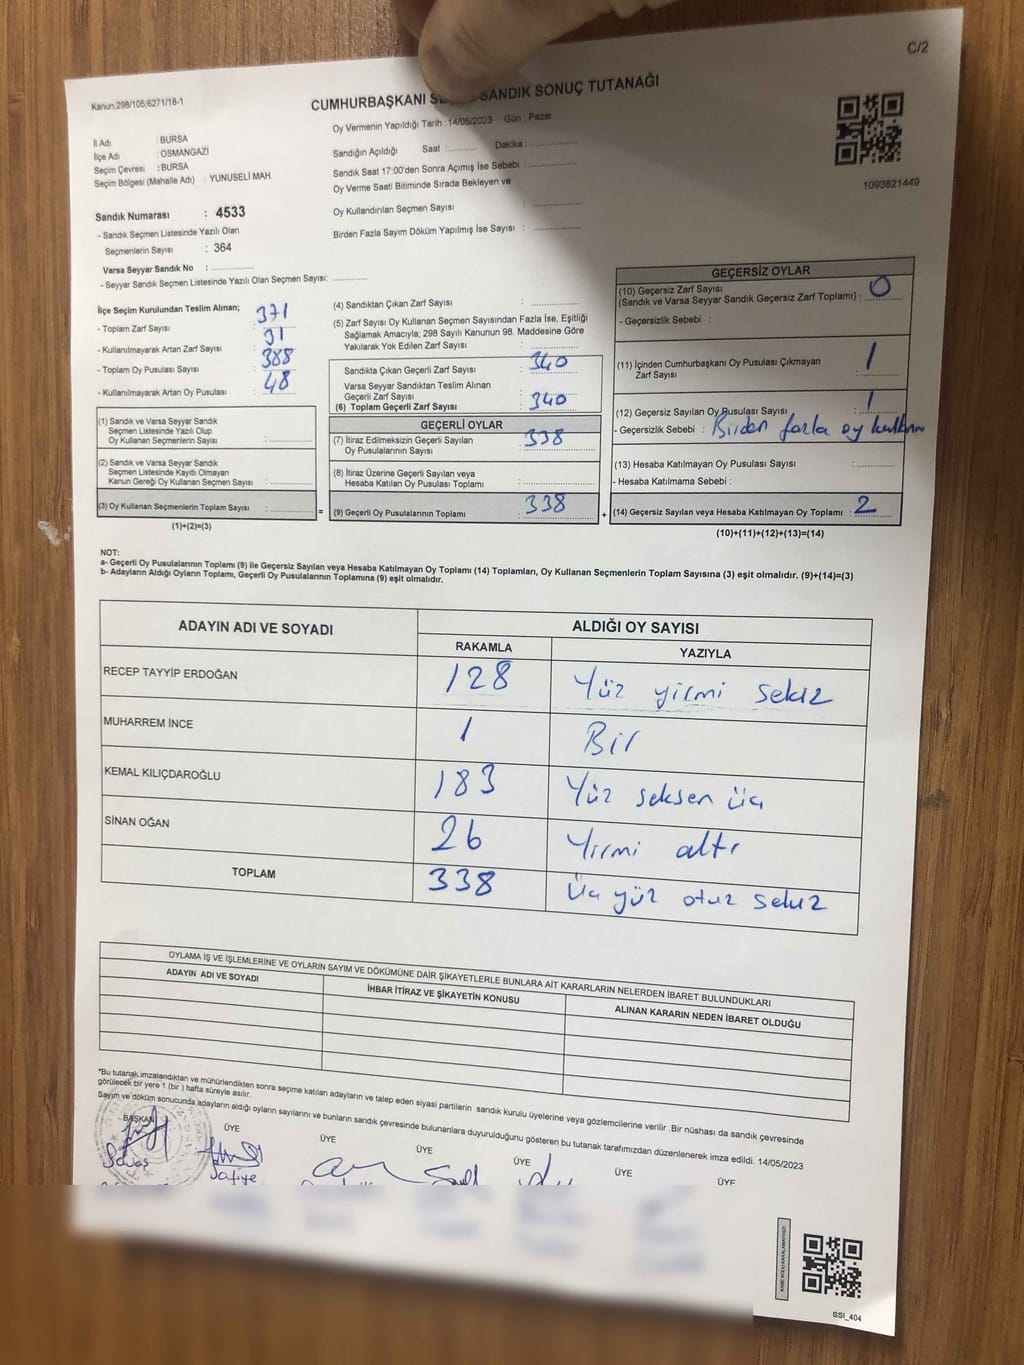 C/2
Kanun:298/105;6271/18-1
CUMHURBAŞKANI SANDIK SONUÇ TUTANAĞI
Oy Vermenin Yapıldığı Tarih : 14/05/2023 Gün : Pazar
İl Adı : BURSA
İlçe Adı : OSMANGAZİ
Seçim Çevresi : BURSA
Seçim Bölgesi (Mahalle Adı) : YUNUSELİ MAH.
Sandığın Açıldığı Saat :.......... Dakika :..............
Sandık Saat 17:00'den Sonra Açımış İse Sebebi :..............
Oy Verme Saati Bitiminde Sırada Bekleyen ve
Oy Kullandırılan Seçmen Sayısı : ..............
Birden Fazla Sayım Döküm Yapılmış İse Sayısı : ..............
1093821449
Sandık Numarası : 4533
- Sandık Seçmen Listesinde Yazılı Olan
Seçmenlerin Sayısı : 364
Varsa Seyyar Sandık No : ..............
- Seyyar Sandık Seçmen Listesinde Yazılı Olan Seçmen Sayısı: ..........
İlçe Seçim Kurulundan Teslim Alınan;
- Toplam Zarf Sayısı : 371
- Kullanılmayarak Artan Zarf Sayısı : 31
- Toplam Oy Pusulası Sayısı : 388
- Kullanılmayarak Artan Oy Pusulası : 48
(1) Sandık ve Varsa Seyyar Sandık
Seçmen Listesinde Yazılı Olup
Oy Kullanan Seçmenlerin Sayısı :..............
(2) Sandık ve Varsa Seyyar Sandık
Seçmen Listesinde Kayıtlı Olmayan
Kanun Gereği Oy Kullanan Seçmen Sayısı :..............
(3) Oy Kullanan Seçmenlerin Toplam Sayısı :..............
(1)+(2)=(3)
(4) Sandıktan Çıkan Zarf Sayısı : ..............
(5) Zarf Sayısı Oy Kullanan Seçmen Sayısından Fazla İse, Eşitliği
Sağlamak Amacıyla; 298 Sayılı Kanunun 98. Maddesine Göre
Yakılarak Yok Edilen Zarf Sayısı : ..............
Sandıkta Çıkan Geçerli Zarf Sayısı : 340
Varsa Seyyar Sandıktan Teslim Alınan
Geçerli Zarf Sayısı :
(6) Toplam Geçerli Zarf Sayısı : 340
GEÇERLİ OYLAR
(7) İtiraz Edilmeksizin Geçerli Sayılan
Oy Pusulalarının Sayısı : 338
(8) İtiraz Üzerine Geçerli Sayılan veya
Hesaba Katılan Oy Pusulası Toplamı :..............
= (9) Geçerli Oy Pusulalarının Toplamı : 338 +
GEÇERSİZ OYLAR
(10) Geçersiz Zarf Sayısı
(Sandık ve Varsa Seyyar Sandık Geçersiz Zarf Toplamı) : 0
- Geçersizlik Sebebi :
(11) İçinden Cumhurbaşkanı Oy Pusulası Çıkmayan
Zarf Sayısı : 1
(12) Geçersiz Sayılan Oy Pusulası Sayısı : 1
- Geçersizlik Sebebi : Birden fazla oy
(13) Hesaba Katılmayan Oy Pusulası Sayısı :..............
- Hesaba Katılmama Sebebi :
(14) Geçersiz Sayılan veya Hesaba Katılmayan Oy Toplamı : 2
(10)+(11)+(12)+(13)=(14)
NOT:
a- Geçerli Oy Pusulalarının Toplamı (9) ile Geçersiz Sayılan veya Hesaba Katılmayan Oy Toplamı (14) Toplamları, Oy Kullanan Seçmenlerin Toplam Sayısına (3) eşit olmalıdır. (9)+(14)=(3)
b- Adayların Aldığı Oyların Toplamı, Geçerli Oy Pusulalarının Toplamına (9) eşit olmalıdır.
ADAYIN ADI VE SOYADI
ALDIĞI OY SAYISI
RAKAMLA YAZIYLA
RECEP TAYYİP ERDOĞAN 128 Yüz yirmi sekiz
MUHARREM İNCE 1 Bir
KEMAL KILIÇDAROĞLU 183 Yüz seksen üç
SİNAN OĞAN 26 Yirmi altı
TOPLAM 338 Üç yüz otuz sekiz
OYLAMA İŞ VE İŞLEMLERİNE VE OYLARIN SAYIM VE DÖKÜMÜNE DAİR ŞİKAYETLERLE BUNLARA AİT KARARLARIN NELERDEN İBARET BULUNDUKLARI
ADAYIN ADI VE SOYADI
İHBAR İTİRAZ VE ŞİKAYETİN KONUSU
ALINAN KARARIN NEDEN İBARET OLDUĞU
*Bu tutanak imzalandıktan ve mühürlendikten sonra seçime katılan adayların ve talep eden siyasi partilerin sandık kurulu üyelerine veya gözlemcilerine verilir .Bir nüshası da sandık çevresinde
görülecek bir yere 1 (bir ) hafta süreyle asılır.
Sayım ve döküm sonucunda adayların aldığı oyların sayılarını ve bunların sandık çevresinde bulunanlara duyurulduğunu gösteren bu tutanak tarafımızdan düzenlenerek imza edildi. 14/05/2023
BAŞKAN ÜYE ÜYE ÜYE ÜYE ÜYE ÜYE
Savaş Safiye
SSI_404